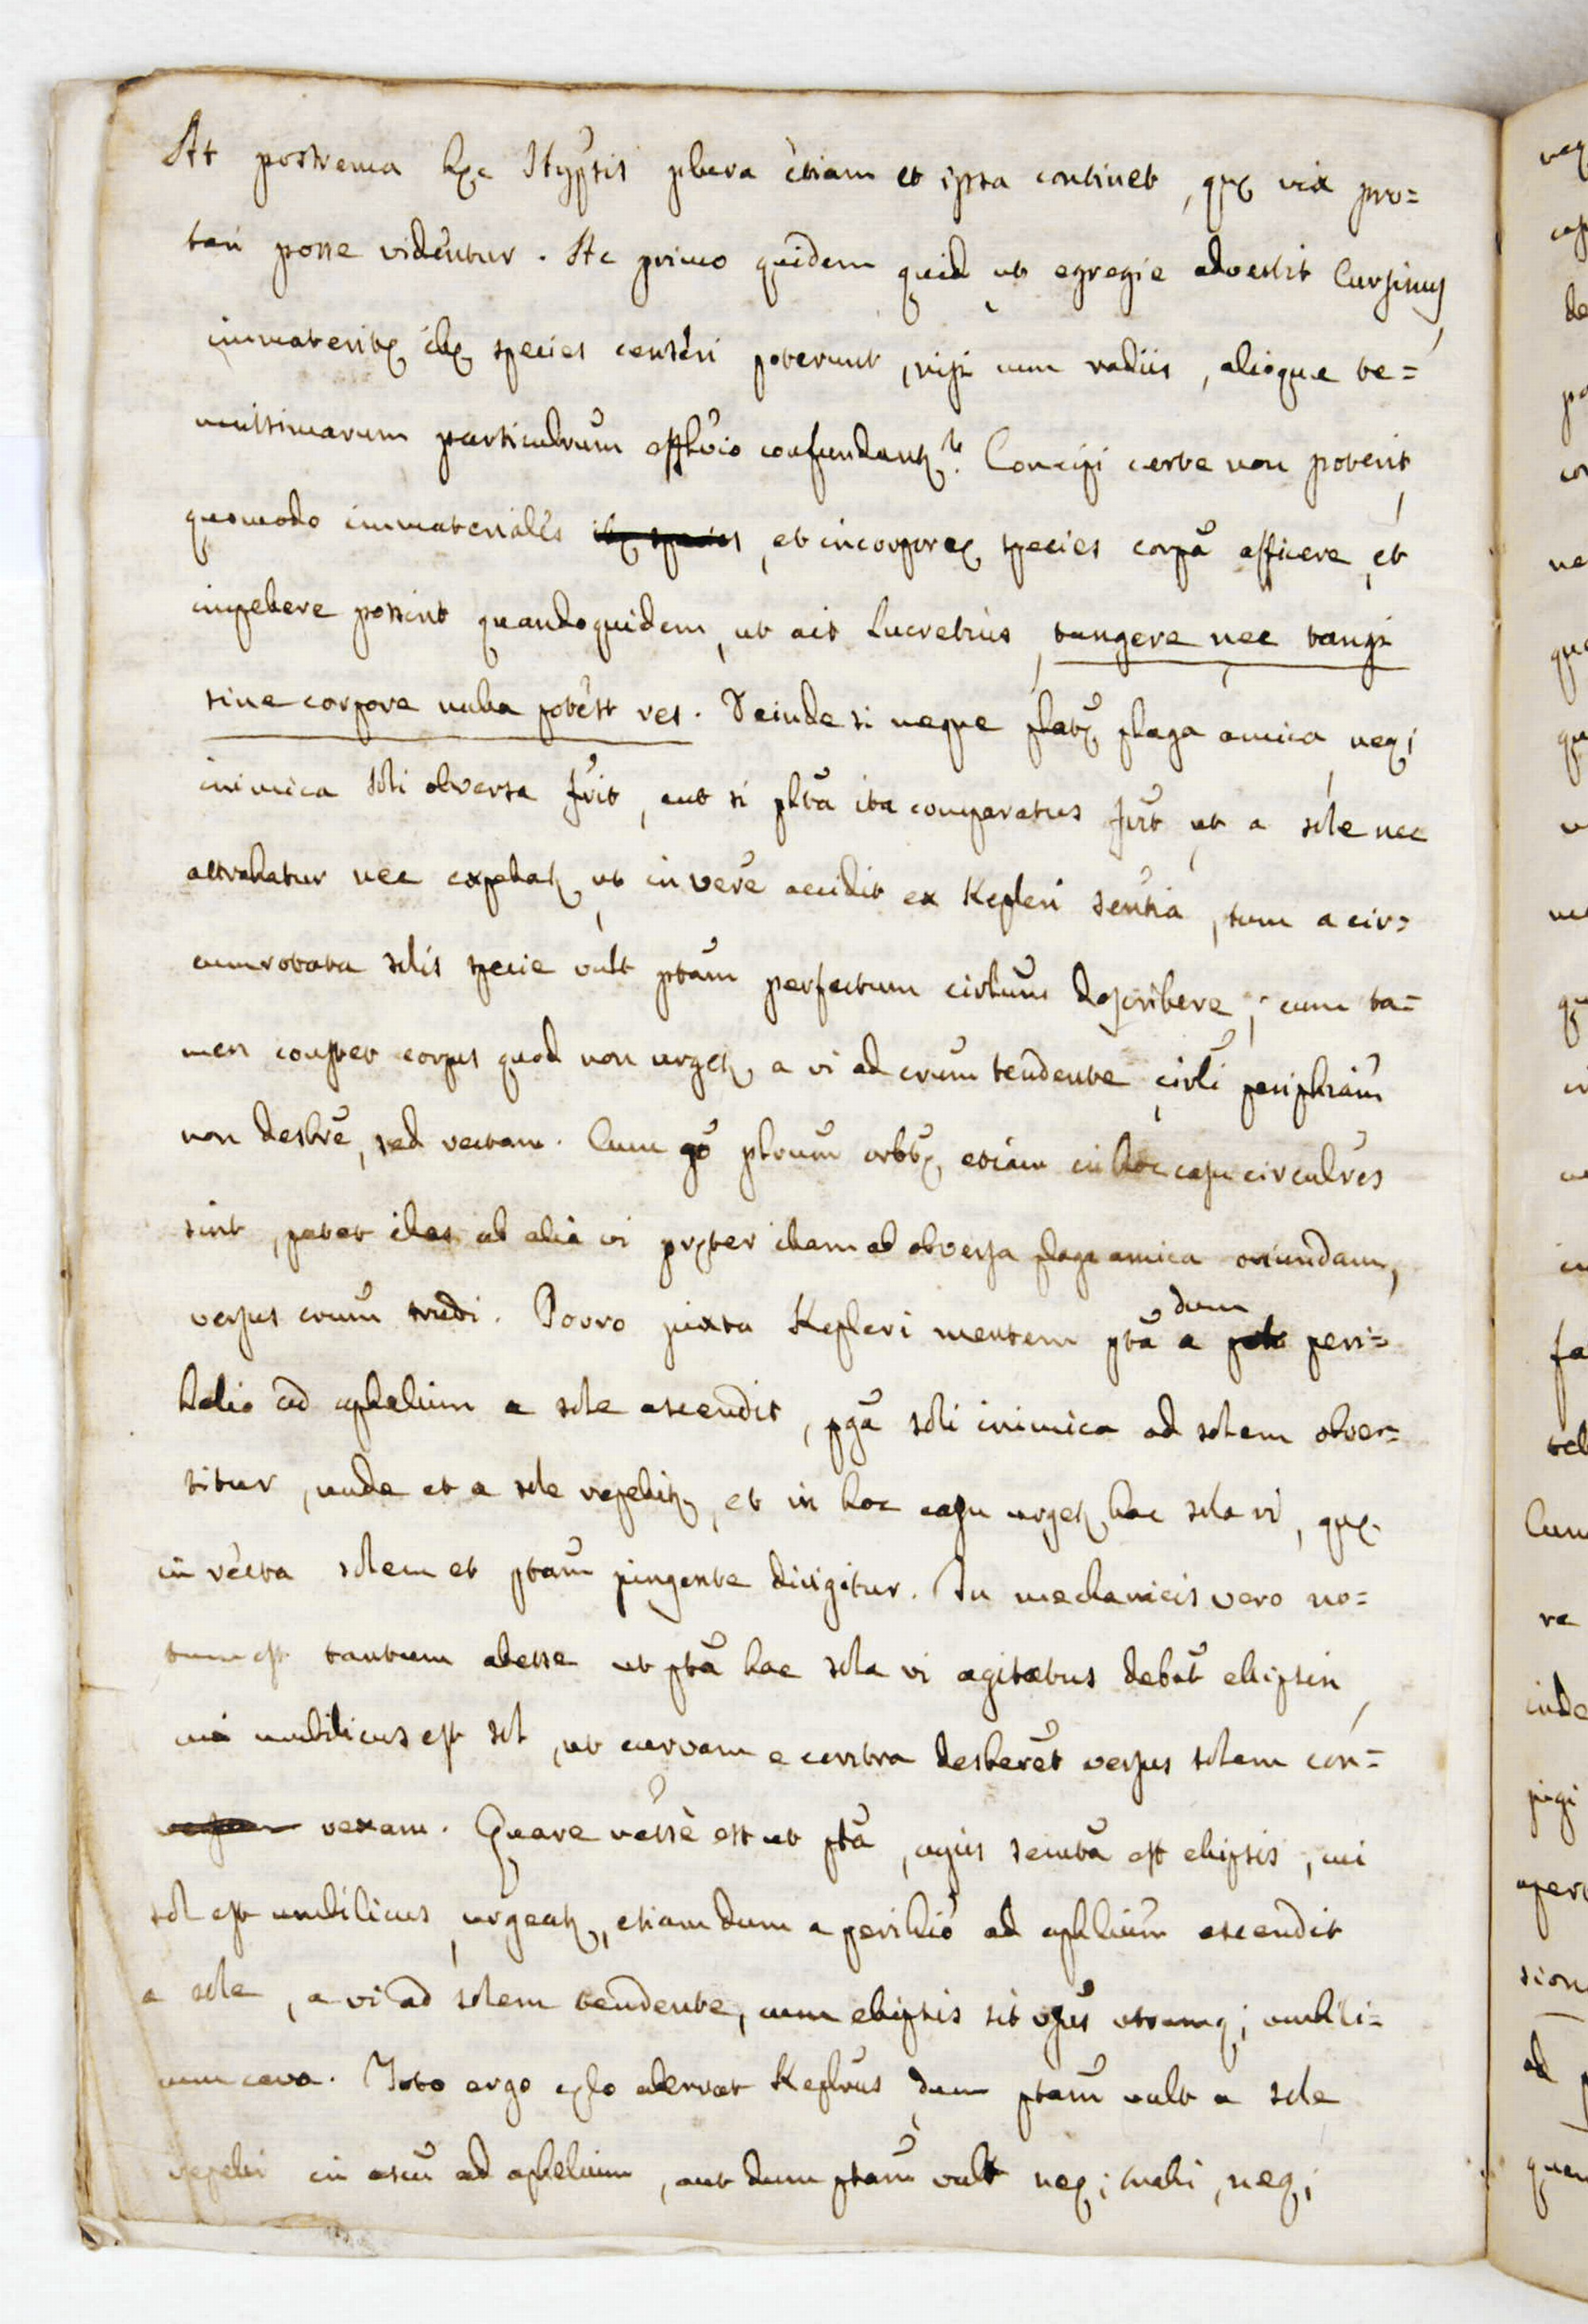 At postrema hæc Hypsis plura etiam et ipsa continet, quæ vix pro=
bari posse videntur. Ac primo quidem quid ut egregie advertit Cursinus,
immateritæ illæ species censeri poterunt, nisi cum radiis, alioque te=
nuissimarum particulrum effluvio confundant.r? Concipi certe non poterit,
quomodo immateriales illæ species, et incorporeæ species corpa afficere, et
impellere possint quandoquidem, ut ait Lucretius, tangere nec tangi
sine corpore nulla potest res. Deinde si neque plaga amica, neq;
inimica soli obversa fuit, aut si plta ita comparatus fuit, ut a sole nec
attrahatur nec expellat, ut in vere accidit ex Kepleri sentia, tum a cir=
cumrotata solis specie vult ptam perfectum cirlum describere; cum ta=
men constet corpus quod non urget a vi ad crum tendente, cirli periphriam
non desbre, sed rectam. Cum go pltrum orbtæ etiam in hoc casu circulres
sint, patet illas ab alia vi præter illam ab obversa plaga amica oriundam,
versus crum trudi. Porro juxta Kepleri mentem pta dum a peri=
helio ad aphelium a sole ascendit, pga soli inimica ad solem obver=
titur, unde et a sole repellit, et in hoc casu urget hac sola vi, quæ
in recta solem et ptam jungente dirigitur. In mechanicis vero no=
tum est tantum abesse ut pta hac sola vi agitatus debat ellipsin,
cui umbilicus est sol, ut curvam e contra desberet versus solem con=
vexam. Quare necsse est ut pta, cujus semita est ellipsis, cui
sol est umbilicus, urgeat, etiam dum a perihlio ad aphlium ascendit
a sole, a vi ad solem tendente, cum ellipsis sit vsus utrumq; umbili=
cum cava. Toto ergo cælo aberrat Keplrus dum ptam vult a sole
repelli in ascu ad aphelium, aut dum ptam vult neq; trahi, neq;